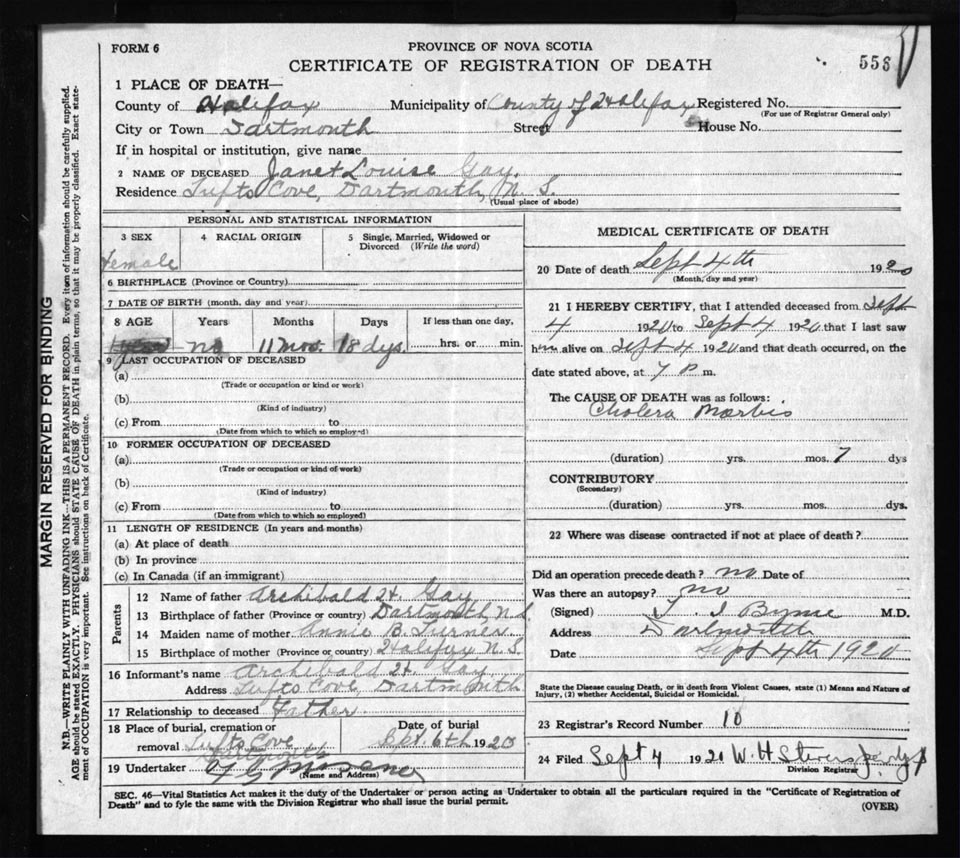 FORM 6
PROVINCE OF NOVA SCOTIA
CERTIFICATE OF REGISTRATION OF DEATH
556
1 PLACE OF DEATH—
County of Halifax Municipality of County of Halifax Registered No.
(For use of Registrar General only)
City or Town Dartmouth Street House No.
If in hospital or institution, give name
2 NAME OF DECEASED Janet Louise Gay.
Residence Tufts Cove, Dartmouth, N. S.
(Usual place of abode)
PERSONAL AND STATISTICAL INFORMATION
3 SEX 4 RACIAL ORIGIN 5 Single, Married, Widowed or
Divorced (Write the word)
Female
6 BIRTHPLACE (Province or Country)
7 DATE OF BIRTH (month, day and year)
8 AGE Years Months Days If less than one day,
no 11 mos. 18 dys. hrs. or min.
9 LAST OCCUPATION OF DECEASED
(a)
(Trade or occupation or kind or work)
(b)
(Kind of industry)
(c) From to
(Date from which to which so employed)
10 FORMER OCCUPATION OF DECEASED
(a)
(Trade or occupation or kind of work)
(b)
(Kind of industry)
(c) From to
(Date from which to which so employed)
11 LENGTH OF RESIDENCE (In years and months)
(a) At place of death
(b) In province
(c) In Canada (if an immigrant)
Parents
12 Name of father Archibald H. Gay
13 Birthplace of father (Province or country) Dartmouth N.S.
14 Maiden name of mother Annie B. Turner
15 Birthplace of mother (Province or country) Halifax N.S.
16 Informant's name Archibald H. Gay
Address Tufts Cove, Dartmouth
17 Relationship to deceased Father.
18 Place of burial, cremation or Date of burial
removal Tufts Cove Sept 6th 1920
Dartmouth
19 Undertaker
(Name and Address)
MEDICAL CERTIFICATE OF DEATH
20 Date of death Sept 4th 1920
(Month, day and year)
21 I HEREBY CERTIFY, that I attended deceased from Sept
4 1920 to Sept 4 1920 that I last saw
h alive on Sept 4 1920 and that death occurred, on the
date stated above, at 7 P m.
The CAUSE OF DEATH was as follows:
Cholera Morbis
(duration) yrs. mos. 7 dys
CONTRIBUTORY
(Secondary)
(duration) yrs. mos. dys.
22 Where was disease contracted if not at place of death?
Did an operation precede death? no Date of
Was there an autopsy? no
(Signed) Byrne M.D.
Address Dartmouth
Date Sept 4th 1920
State the Disease causing Death, or in death from Violent Causes, state (1) Means and Nature of
Injury, (2) whether Accidental, Suicidal or Homicidal.
23 Registrar's Record Number 10
24 Filed Sept 4 1920 W. H.
Division Registrar
SEC. 46—Vital Statistics Act makes it the duty of the Undertaker or person acting as Undertaker to obtain all the particulars required in the "Certificate of Registration of
Death" and to fyle the same with the Division Registrar who shall issue the burial permit. (OVER)
MARGIN RESERVED FOR BINDING
N.B.—WRITE PLAINLY WITH UNFADING INK—THIS IS A PERMANENT RECORD. Every item of information should be carefully supplied.
AGE should be stated EXACTLY. PHYSICIANS should STATE CAUSE OF DEATH in plain terms, so that it may be properly classified. Exact state-
ment of OCCUPATION is very important. See instructions on back of Certificate.